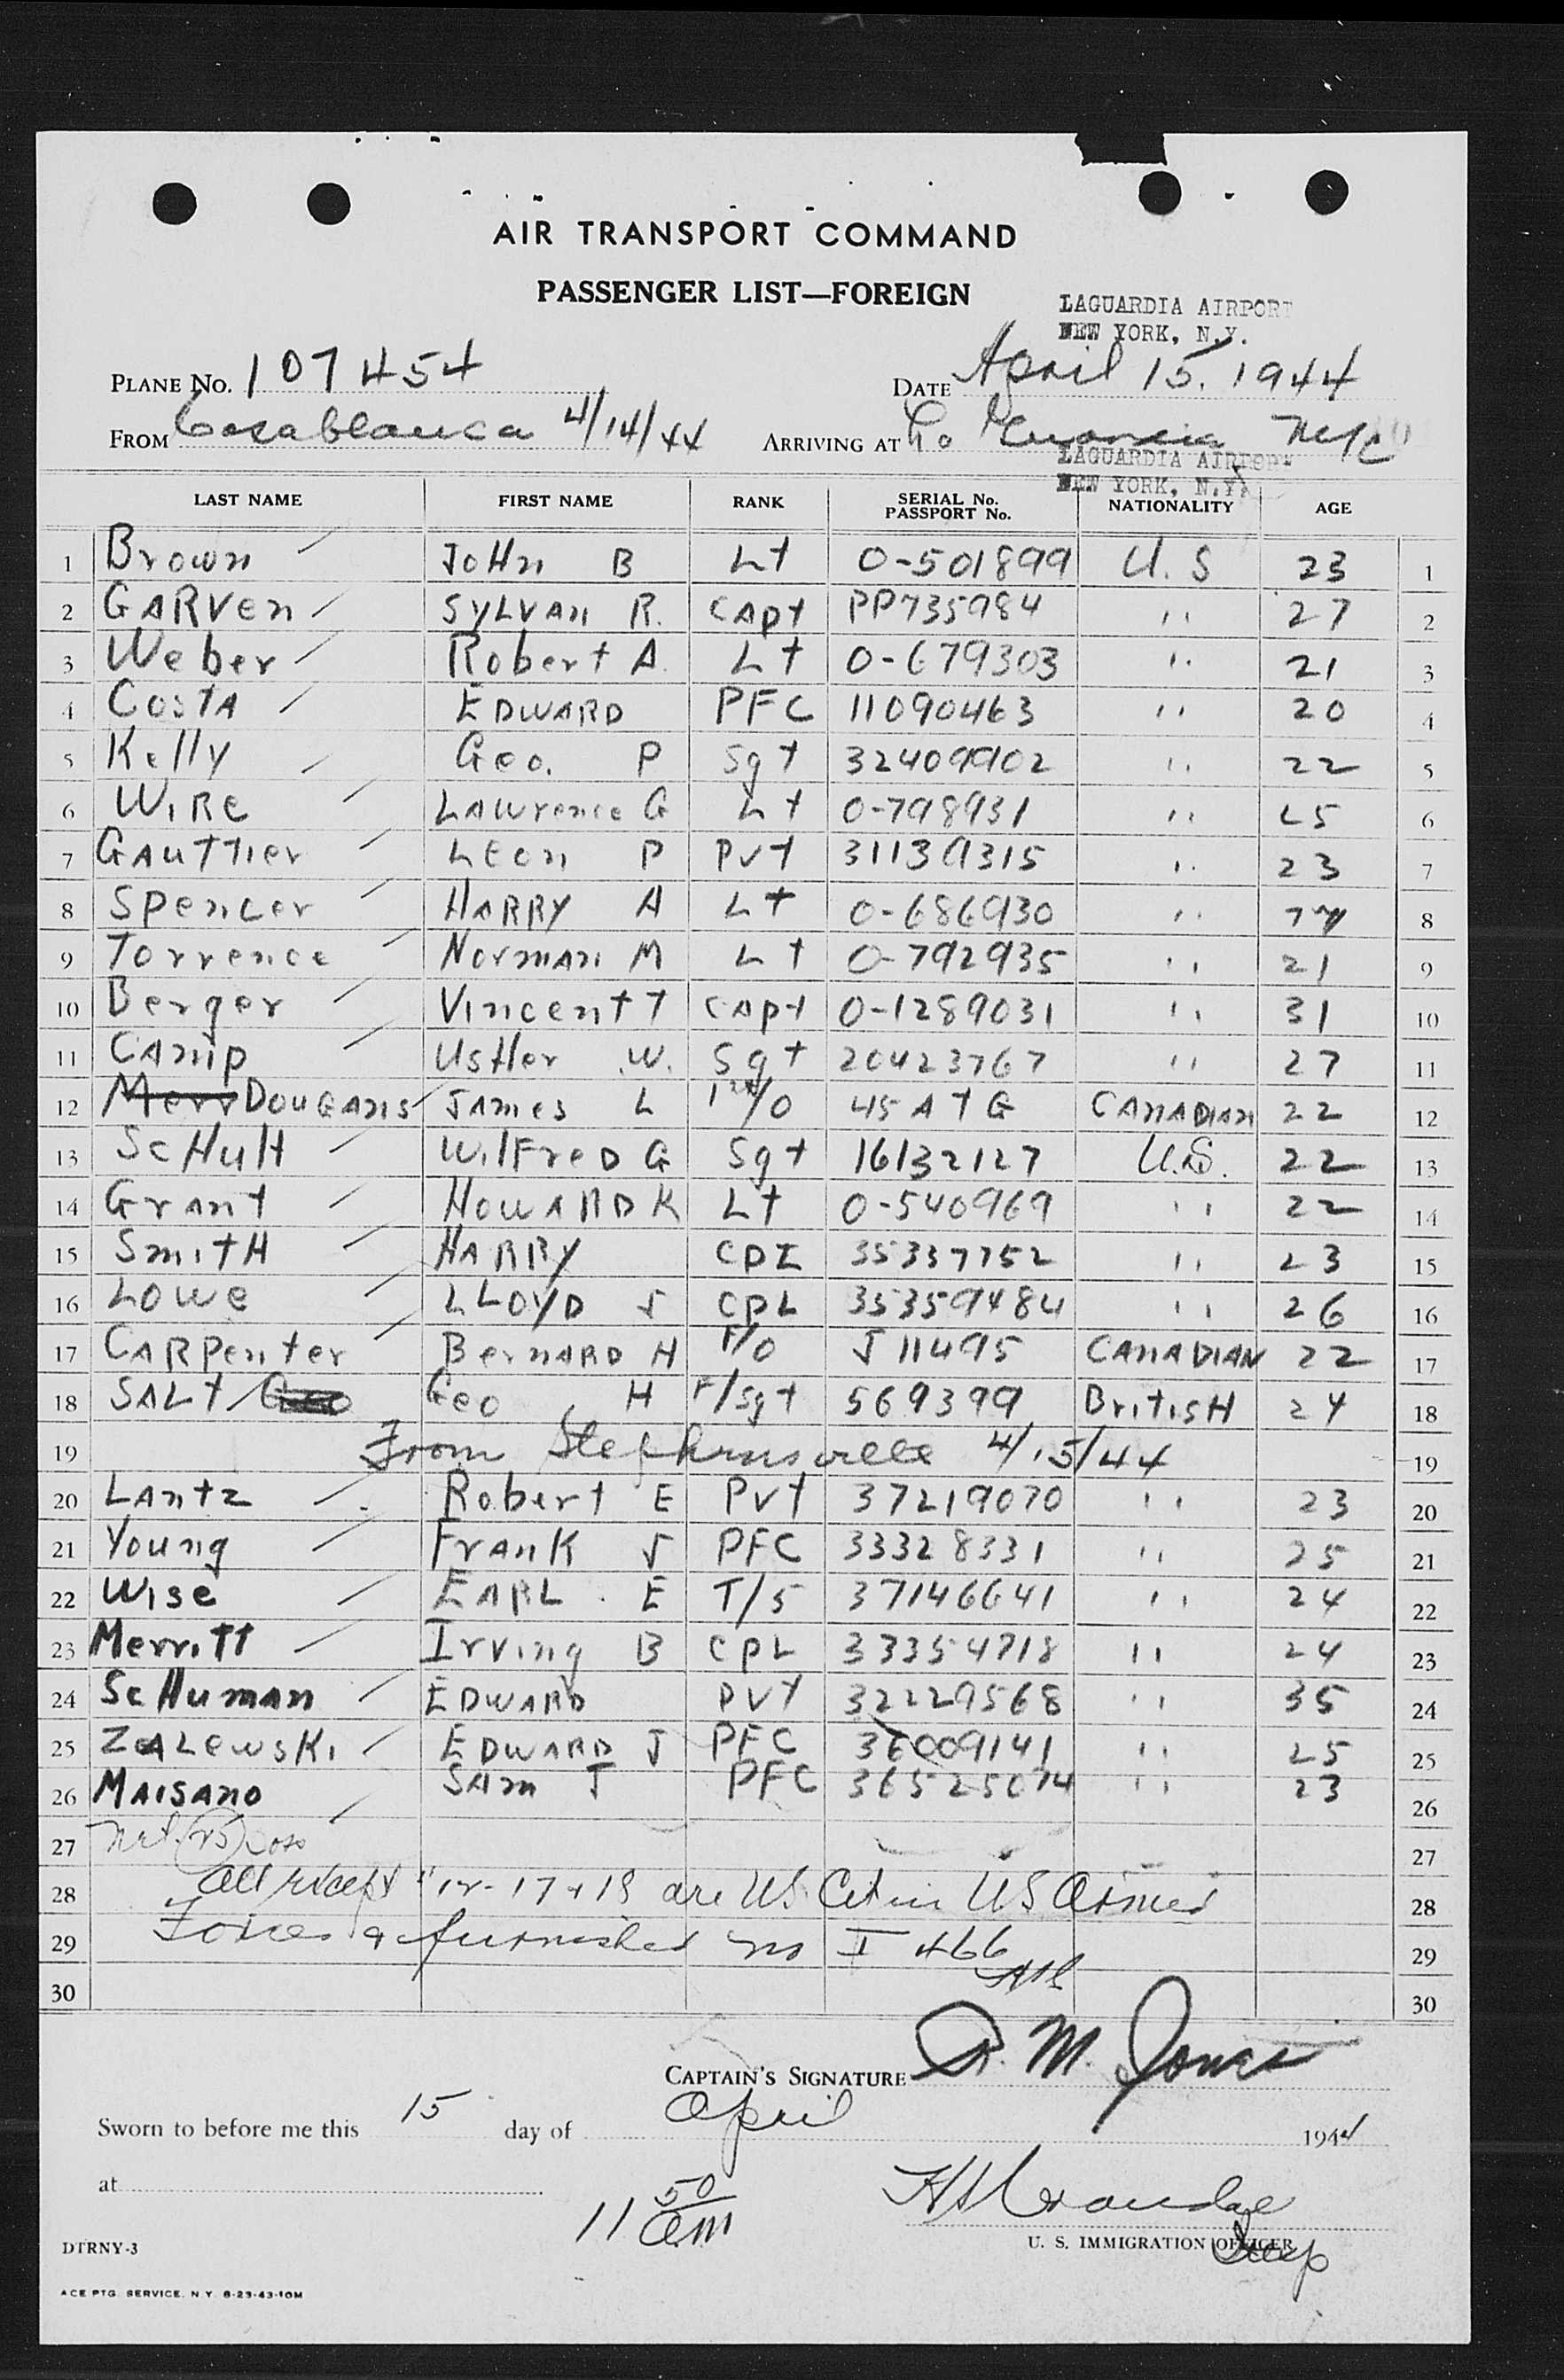 AIR TRANSPORT COMMAND
PASSENGER LIST—FOREIGN
LAGUARDIA AIRPORT
NEW YORK, N.Y.
PLANE NO. 107454 DATE April 15, 1944
FROM Casablanca 4/14/44 ARRIVING AT La Guardia NYC
LAGUARDIA AIRPORT
NEW YORK, N.Y.
LAST NAME FIRST NAME RANK SERIAL No. PASSPORT No. NATIONALITY AGE
1 Brown John B Lt 0-501899 U.S 23 1
2 GARVen SYLVAN R. CApt PP735984 " 27 2
3 Weber Robert A. Lt 0-679303 " 21 3
4 COSTA EDWARD PFC 11090463 " 20 4
5 Kelly Geo. P Sgt 32409902 " 22 5
6 WiRe LAWrence G Lt 0-798931 " 25 6
7 GAuTTier Leon P Pvt 31139315 " 23 7
8 Spencer HARRY A Lt 0-686930 " 8
9 Torrence Norman M Lt 0-792935 " 21 9
10 Berger Vincent T CApt 0-1289031 " 31 10
11 CAmp UstHer W. Sgt 20423767 " 27 11
12 Merr DOUGANS JAmes L 1st/O 45 A T G CANADIAN 22 12
13 ScHult WilFreD G Sgt 16132127 U.S. 22 13
14 Grant HOWARD K Lt 0-540969 " 22 14
15 SmitH HARRY CPL 35337752 " 23 15
16 LOWe LLOYD J CPL 35359484 " 26 16
17 CARPenter BerNARD H F/O J 11495 CANADIAN 22 17
18 SALt Geo Geo H F/Sgt 569399 BritisH 24 18
19 From Stephensville 4/15/44 19
20 LAntz Robert E Pvt 37219070 " 23 20
21 Young FrAnK J PFC 33328331 " 25 21
22 Wise EARL E T/5 37146641 " 24 22
23 Merritt Irving B CPL 33354718 " 24 23
24 ScHuman EDWARD PVT 32229568 " 35 24
25 ZALewsKi EDWARD J PFC 36009141 " 25 25
26 MAISANO SAm J PFC 36525074 " 23 26
27 (25) 27
28 All except "12-17+18 are US Cit in US Armed 28
29 Forces & furnished no I 466 29
30 30
CAPTAIN'S SIGNATURE R. M. Jones
Sworn to before me this 15 day of April 1944
at
11 50 am
U. S. IMMIGRATION OFFICER
DTRNY-3
ACE PTG. SERVICE. N.Y. 8-23-43-10M